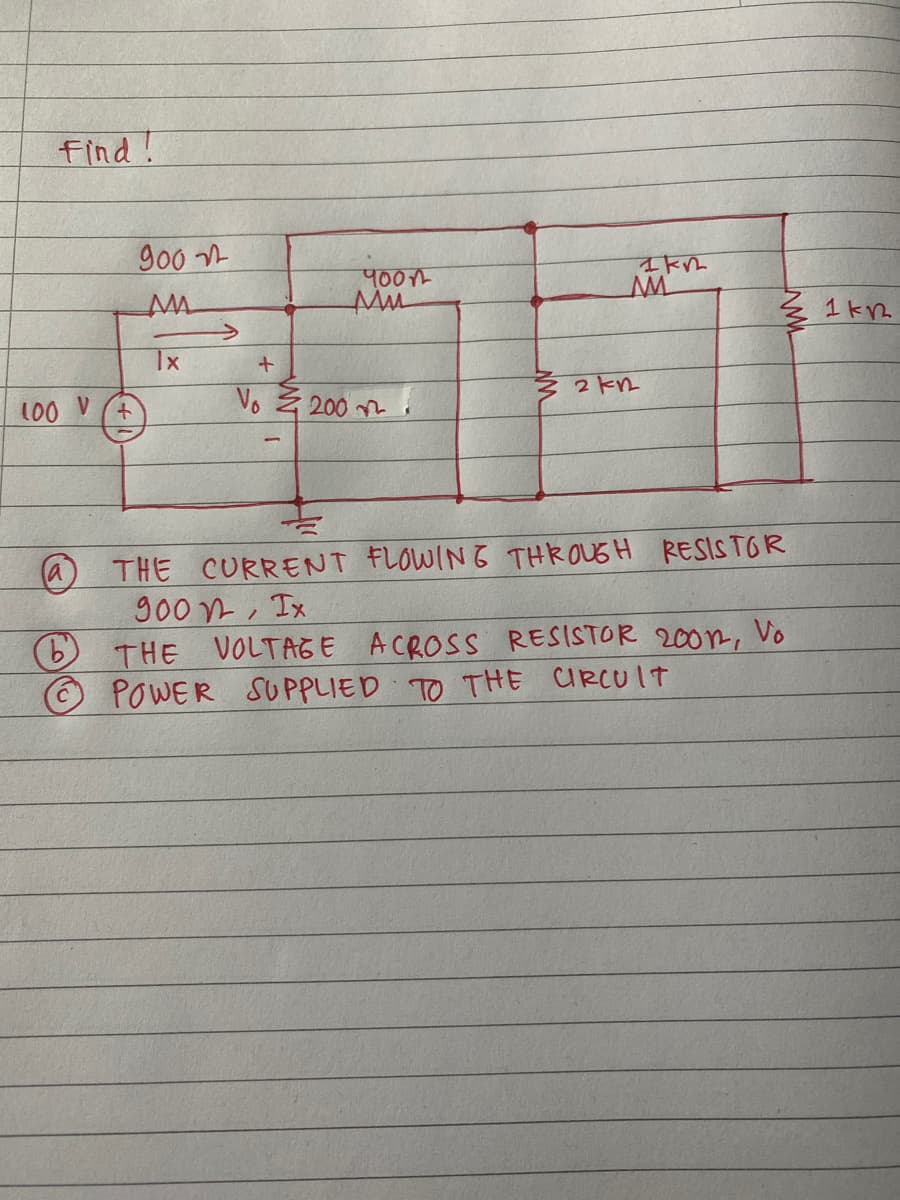 Find!
900 Ω
400Ω
1kΩ
1kΩ
Ix
+
100 V
+
-
Vo
200 Ω
2 kΩ
-
ⓐ THE CURRENT FLOWING THROUGH RESISTOR
900Ω, Ix
ⓑ THE VOLTAGE ACROSS RESISTOR 200Ω, Vo
ⓒ POWER SUPPLIED TO THE CIRCUIT